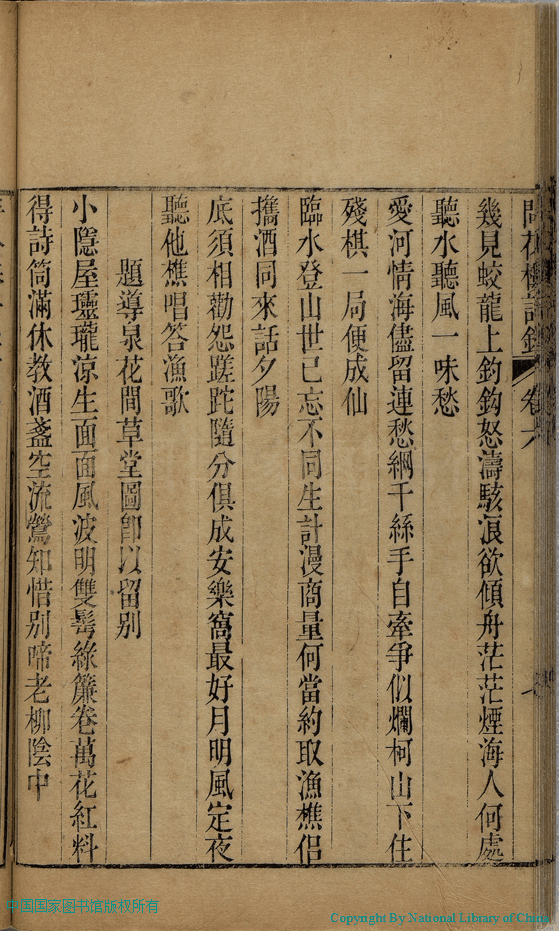 幾見蛟龍上釣鈎怒濤駭浪欲傾舟茫茫煙海人何處
聽水聽風一味愁
愛河情海儘留連愁網千絲手自牽爭似爛柯山下住
殘棋一局便成仙
臨水登山世已忘不同生計漫商量何當約取漁樵侶
攜酒同來話夕陽
底須相勸怨蹉跎隨分俱成安樂窩最好月明風定夜
聽他樵唱答漁歌
題導泉花間草堂圖卽以留別
小隱屋瓏瓏涼生面面風波明雙髩綠簾卷萬花紅料
得詩筒滿休教酒盞空流鶯知惜別啼老柳陰中
卷六
中国国家图书馆版权所有
Copyright By National Library of China